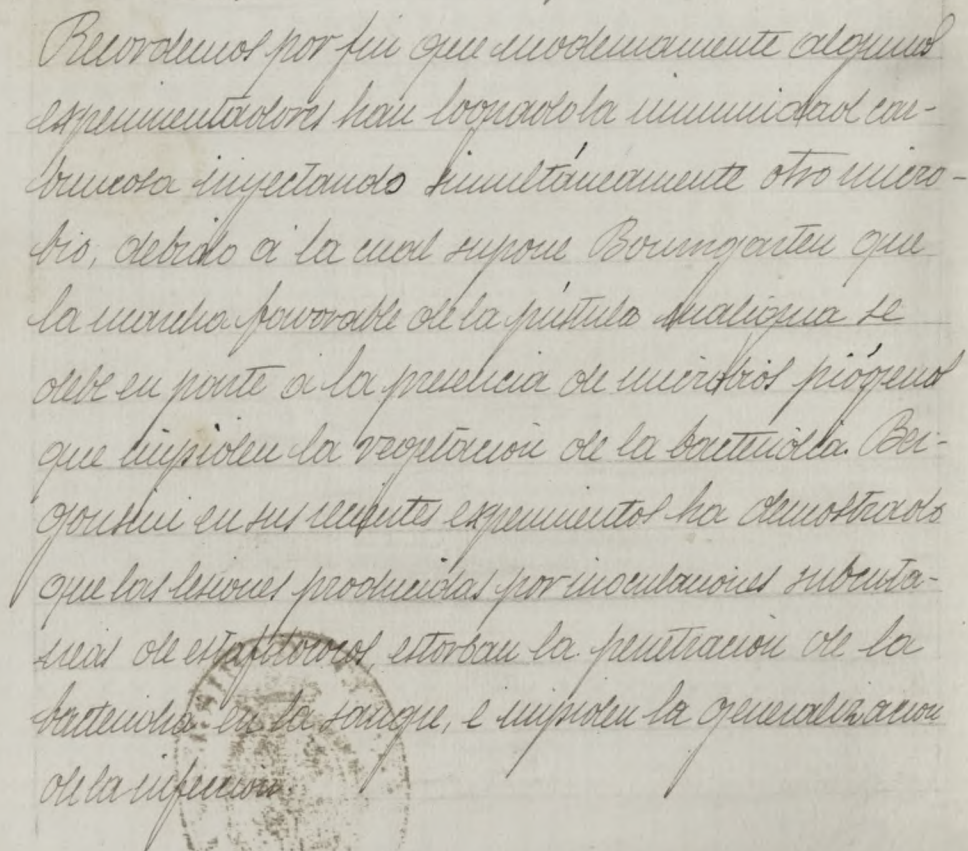 Recordemos por fin que modernamente algunos
experimentadores han logrado la inmunidad car-
buncosa inyectando simultáneamente otro micro-
bio, debido a la cual supone Boumgarten que
la marcha favorable de la pústula maligna se
debe en parte a la presencia de microbios piógenos
que impiden la vegetación de la bacteridia. Ber-
gonsini en sus recientes experimentos ha demostrado
que las lesiones producidas por inoculaciones subcuta-
neas de estafilococos, estorban la penetración de la
bacteridia en la sangre, e impiden la generalización
de la infección.